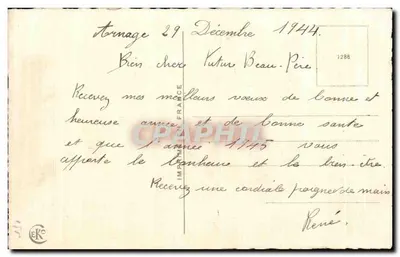 Arnage 29 Décembre 1944.
Bien chere Future Beau-Père
1288
Recevez mes meilleurs vœux de bonne et
heureuse année et de bonne santé
et que l'année 1945 vous
apporte le bonheur et la bien-être.
Recevez une cordiale poignée de main
René.
CPAPHIL
IMPRIMÉ EN FRANCE
EKO